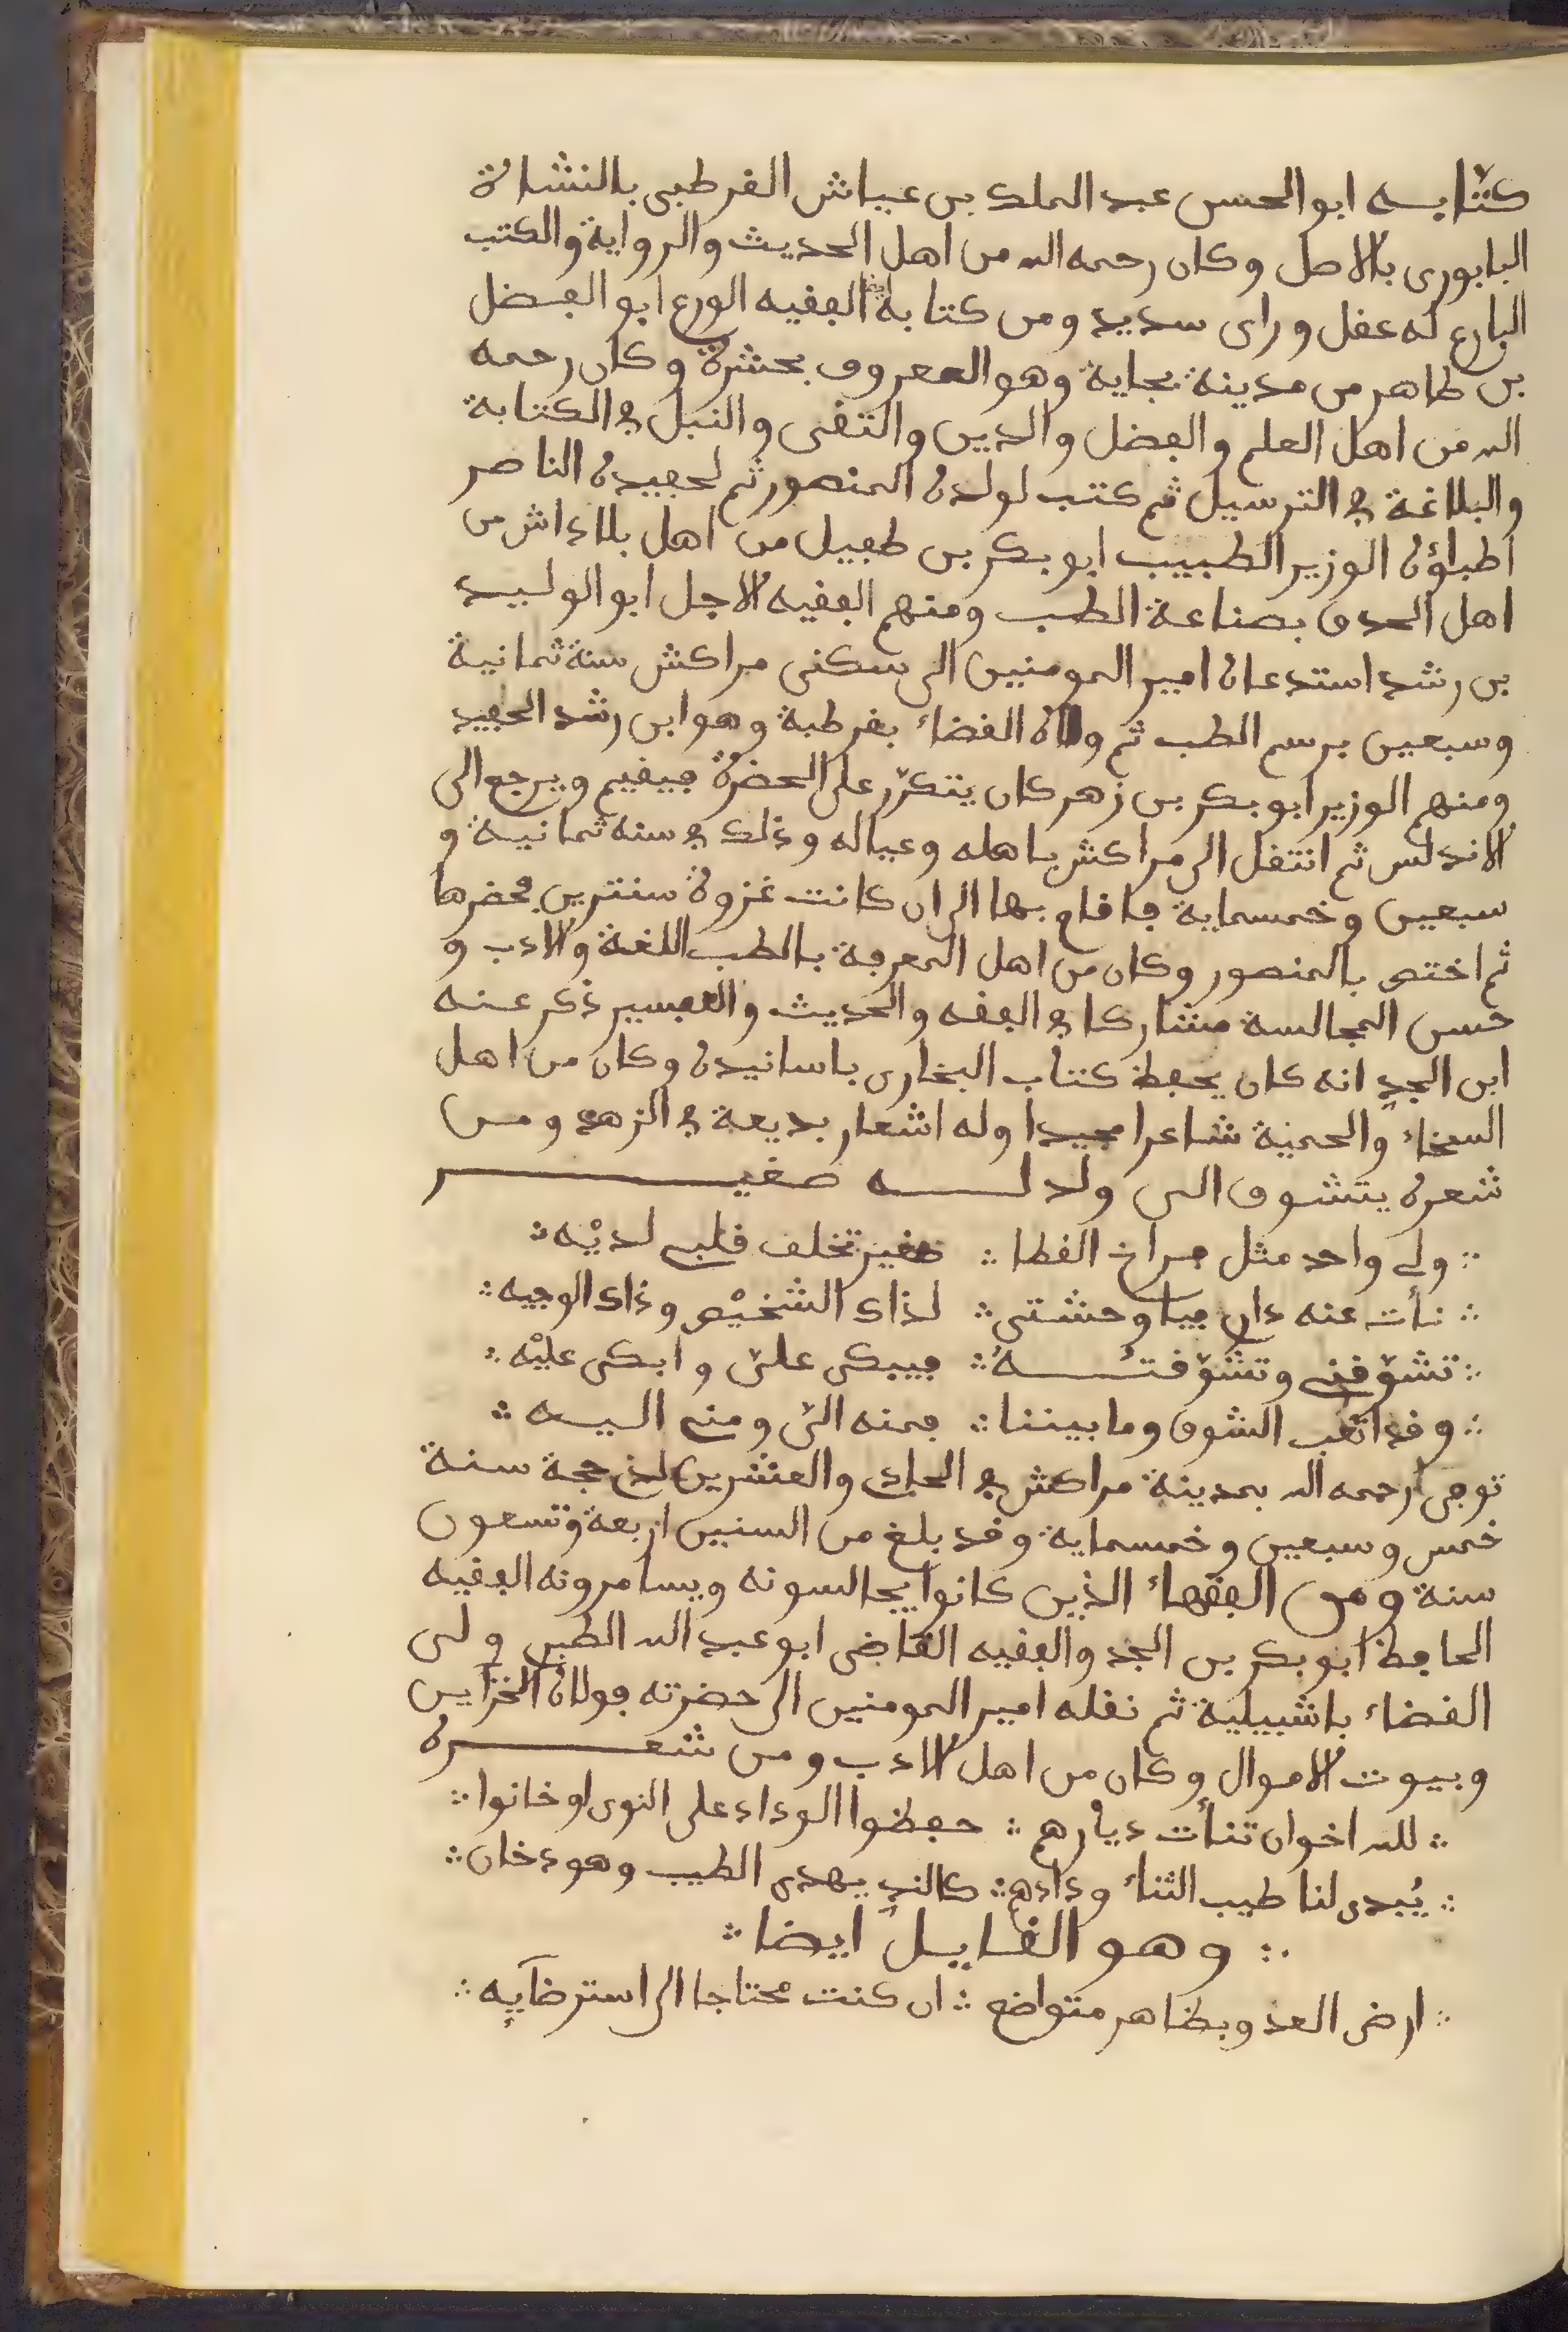 كتّابه ابو الحسن عبد الملك بن عياش القرطبى بالنشاة
اليابورى بالاصل وكان رحمه الله من اهل الحديث والرواية والكتب
البارع له عقل وراى سديد ومن كتابه ايضا الفقيه الورع ابو الفضل
بن طاهر من مدينة بجاية وهو المعروف بحشرة وكان رحمه
الله من اهل العلم والفضل والدين والتقى والنبل في الكتابة
والبلاغة في الترسيل ثم كتب لولده المنصور ثم لحفيده الناصر
اطباؤه الوزير الطبيب ابو بكر بن طفيل من اهل بلاداش من
اهل الحدق بصناعة الطب ومنهم الفقيه الاجل ابو الوليد
بن رشد استدعاه امير المومنين الى سكنى مراكش سنة ثمانية
وسبعين برسم الطب ثم ولاه القضاء بقرطبة وهو ابن رشد الحفيد
ومنهم الوزير ابو بكر بن زهر كان يتكرّر على الحضرة فيقيم ويرجع الى
الاندلس ثم انتقل الى مراكش باهله وعياله وذلك في سنه ثمانية و
سبعين وخمسماية فاقام بها الى ان كانت غزوة سنترين فحضرها
ثم اختص بالمنصور وكان من اهل المعرفة بالطب اللغة والادب و
حسن المجالسة مشاركا في الفقه والحديث والتفسير ذكر عنه
ابن الجد انه كان يحفظ كتاب البخارى باسانيده وكان من اهل
السخاء والحمية شاعرا مجيدا وله اشعار بديعة في الزهد ومن
شعره يتشوق الى ولد له صغير
ولي واحد مثل فراخ القطا ∴ صغير تخلف قلبي لديْه
نأت عنه داري فياوحشتى ∴ لذاك الشخيْص وذاك الوجيه
تشوّقني وتشوّقتُهُ ∴ فيبكى علىّ وابكى عليْه
وقد اتعب الشوق ومابيننا ∴ فمنه الىّ ومني اليه
توفى رحمه الله بمدينة مراكش في الحادي والعشرين لذي حجة سنة
خمس وسبعين وخمسماية وقد بلغ من السنين اربعة وتسعون
سنة ومن الفقهاء الذين كانوا يجالسونه ويسامرونه الفقيه
الحافظ ابو بكر بن الجد والفقيه القاضى ابو عبد الله الطبى ولى
القضاء باشبيلية ثم نقله امير المومنين الى حضرته فولاه الخزاين
وبيوت الاموال وكان من اهل الادب ومن شعره
لله اخوان تنأت ديارهم ∴ حفظوا الوداد على النوى او خانوا
يُبدى لنا طيب الثناء ودادهم ∴ كالند يهدى الطيب وهو دخان
وهو القايل ايضا
ارض العدو بظاهر متواضع ∴ ان كنت محتاجا الى استرضآيه